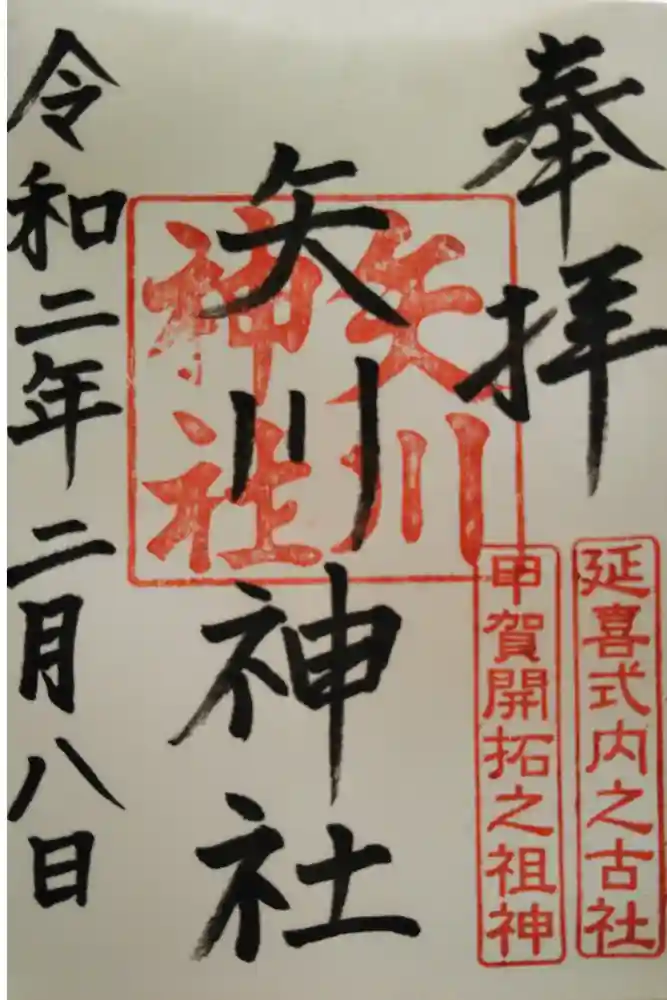 奉拝
延喜式内之古社
甲賀開拓之祖神
矢川神社
矢川
神社
令和二年二月八日